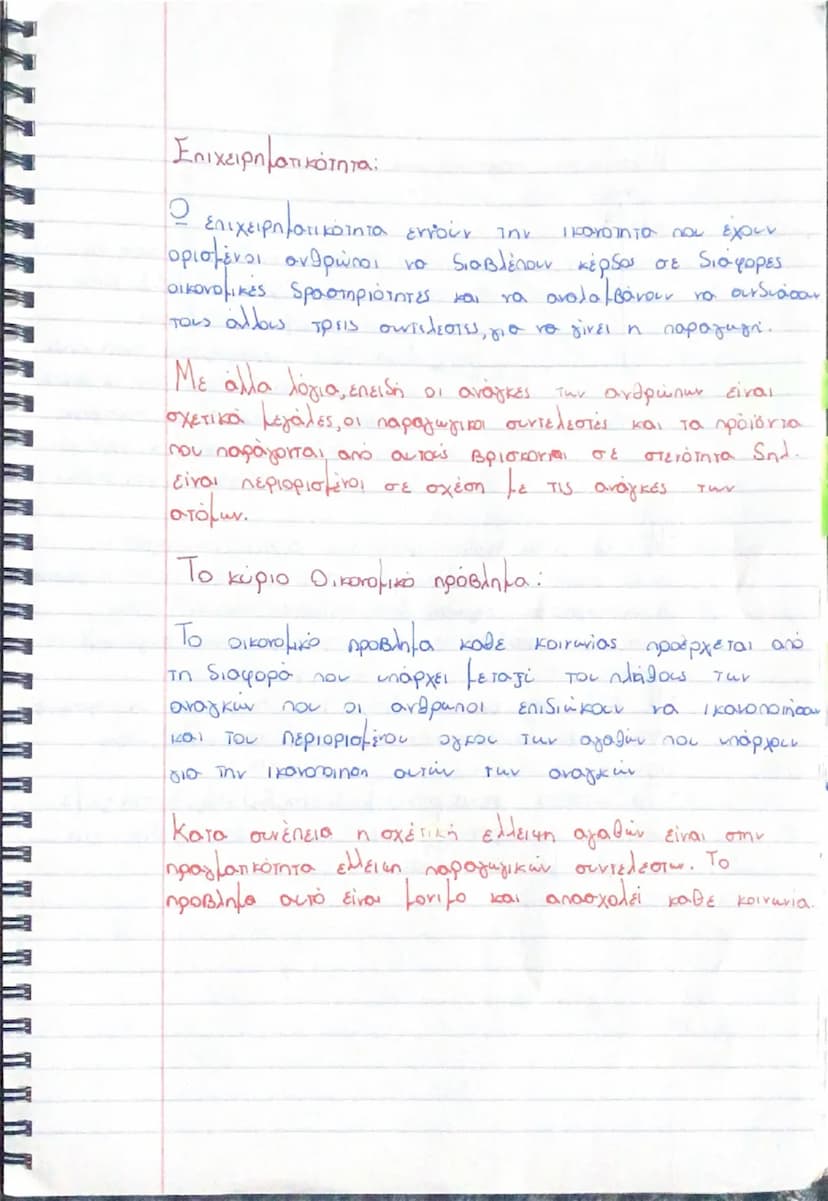 Επιχειρηματικότητα:
Ω επιχειρηματικότητα εννούν την ικανότητα που έχουν
ορισμένοι ανθρώποι να διαβλέπουν κέρδος σε διάφορες
οικονομικές δραστηριότητες και να αναλαμβάνουν να συνδυάσουν
τους άλλους τρεις συντελεστες, για να γίνει η παραγωγή.
Με άλλα λόγια, επειδή οι ανάγκες των ανθρώπων είναι
σχετικά μεγάλες, οι παραγωγικοι συντελεστές και τα πρόϊόντα
που παράγονται από αυτούς βρίσκονται σε στενότητα δηλ.
είναι περιορισμένοι σε σχέση με τις ανάγκές των
ατόμων.
Το κύριο Οικονομικό πρόβλημα:
Το οικονομικό προβλημα καθε κοινωνίας προέρχεται από
τη διαφορά που υπάρχει μεταξύ του πλήθους των
αναγκών που οι ανθρωποι επιδιώκουν να ικανοποιήσουν
και του περιορισμένου ογκου των αγαθών που υπάρχουν
για την ικανοποιηση αυτών των αναγκών
Κατα συνέπεια η σχέτική ελλειψη αγαθών είναι στην
πραγματικότητα ελλειψη παραγωγικών συντελεστων. Το
προβλημα αυτό είναι μονιμο και απασχολεί καθε κοινωνία.